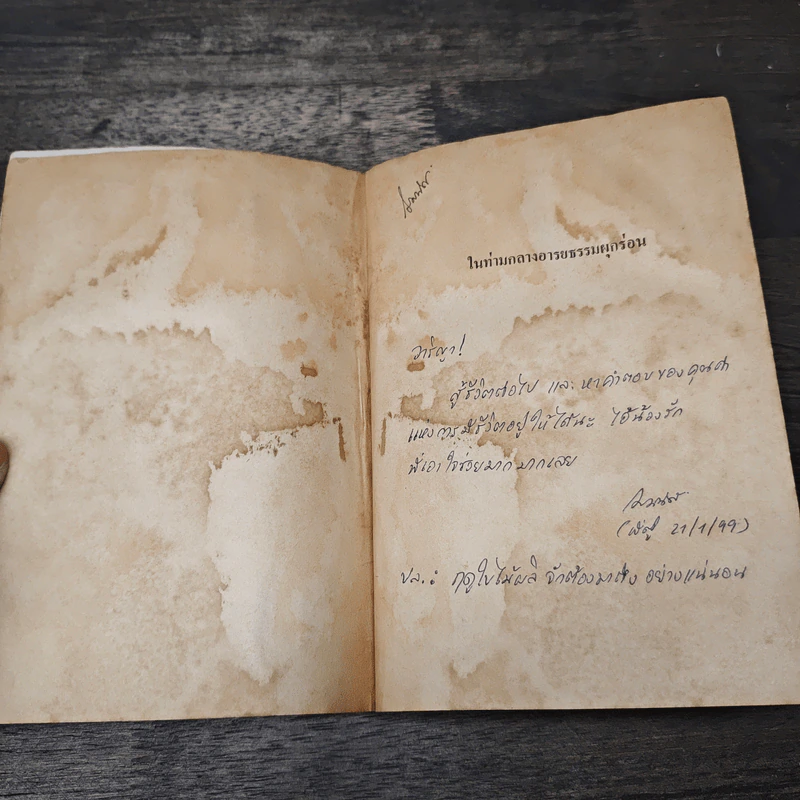 ในท่ามกลางอารยธรรมผุกร่อน
วาริญา!
สู้ชีวิตต่อไป และหาคำตอบของคุณค่า
แห่งการมีชีวิตอยู่ให้ได้นะ ไอ้น้องรัก
พี่เอาใจช่วยมาก มากเลย
21/1/99)
ปล.: ฤดูใบไม้ผลิ จักต้องมาถึง อย่างแน่นอน